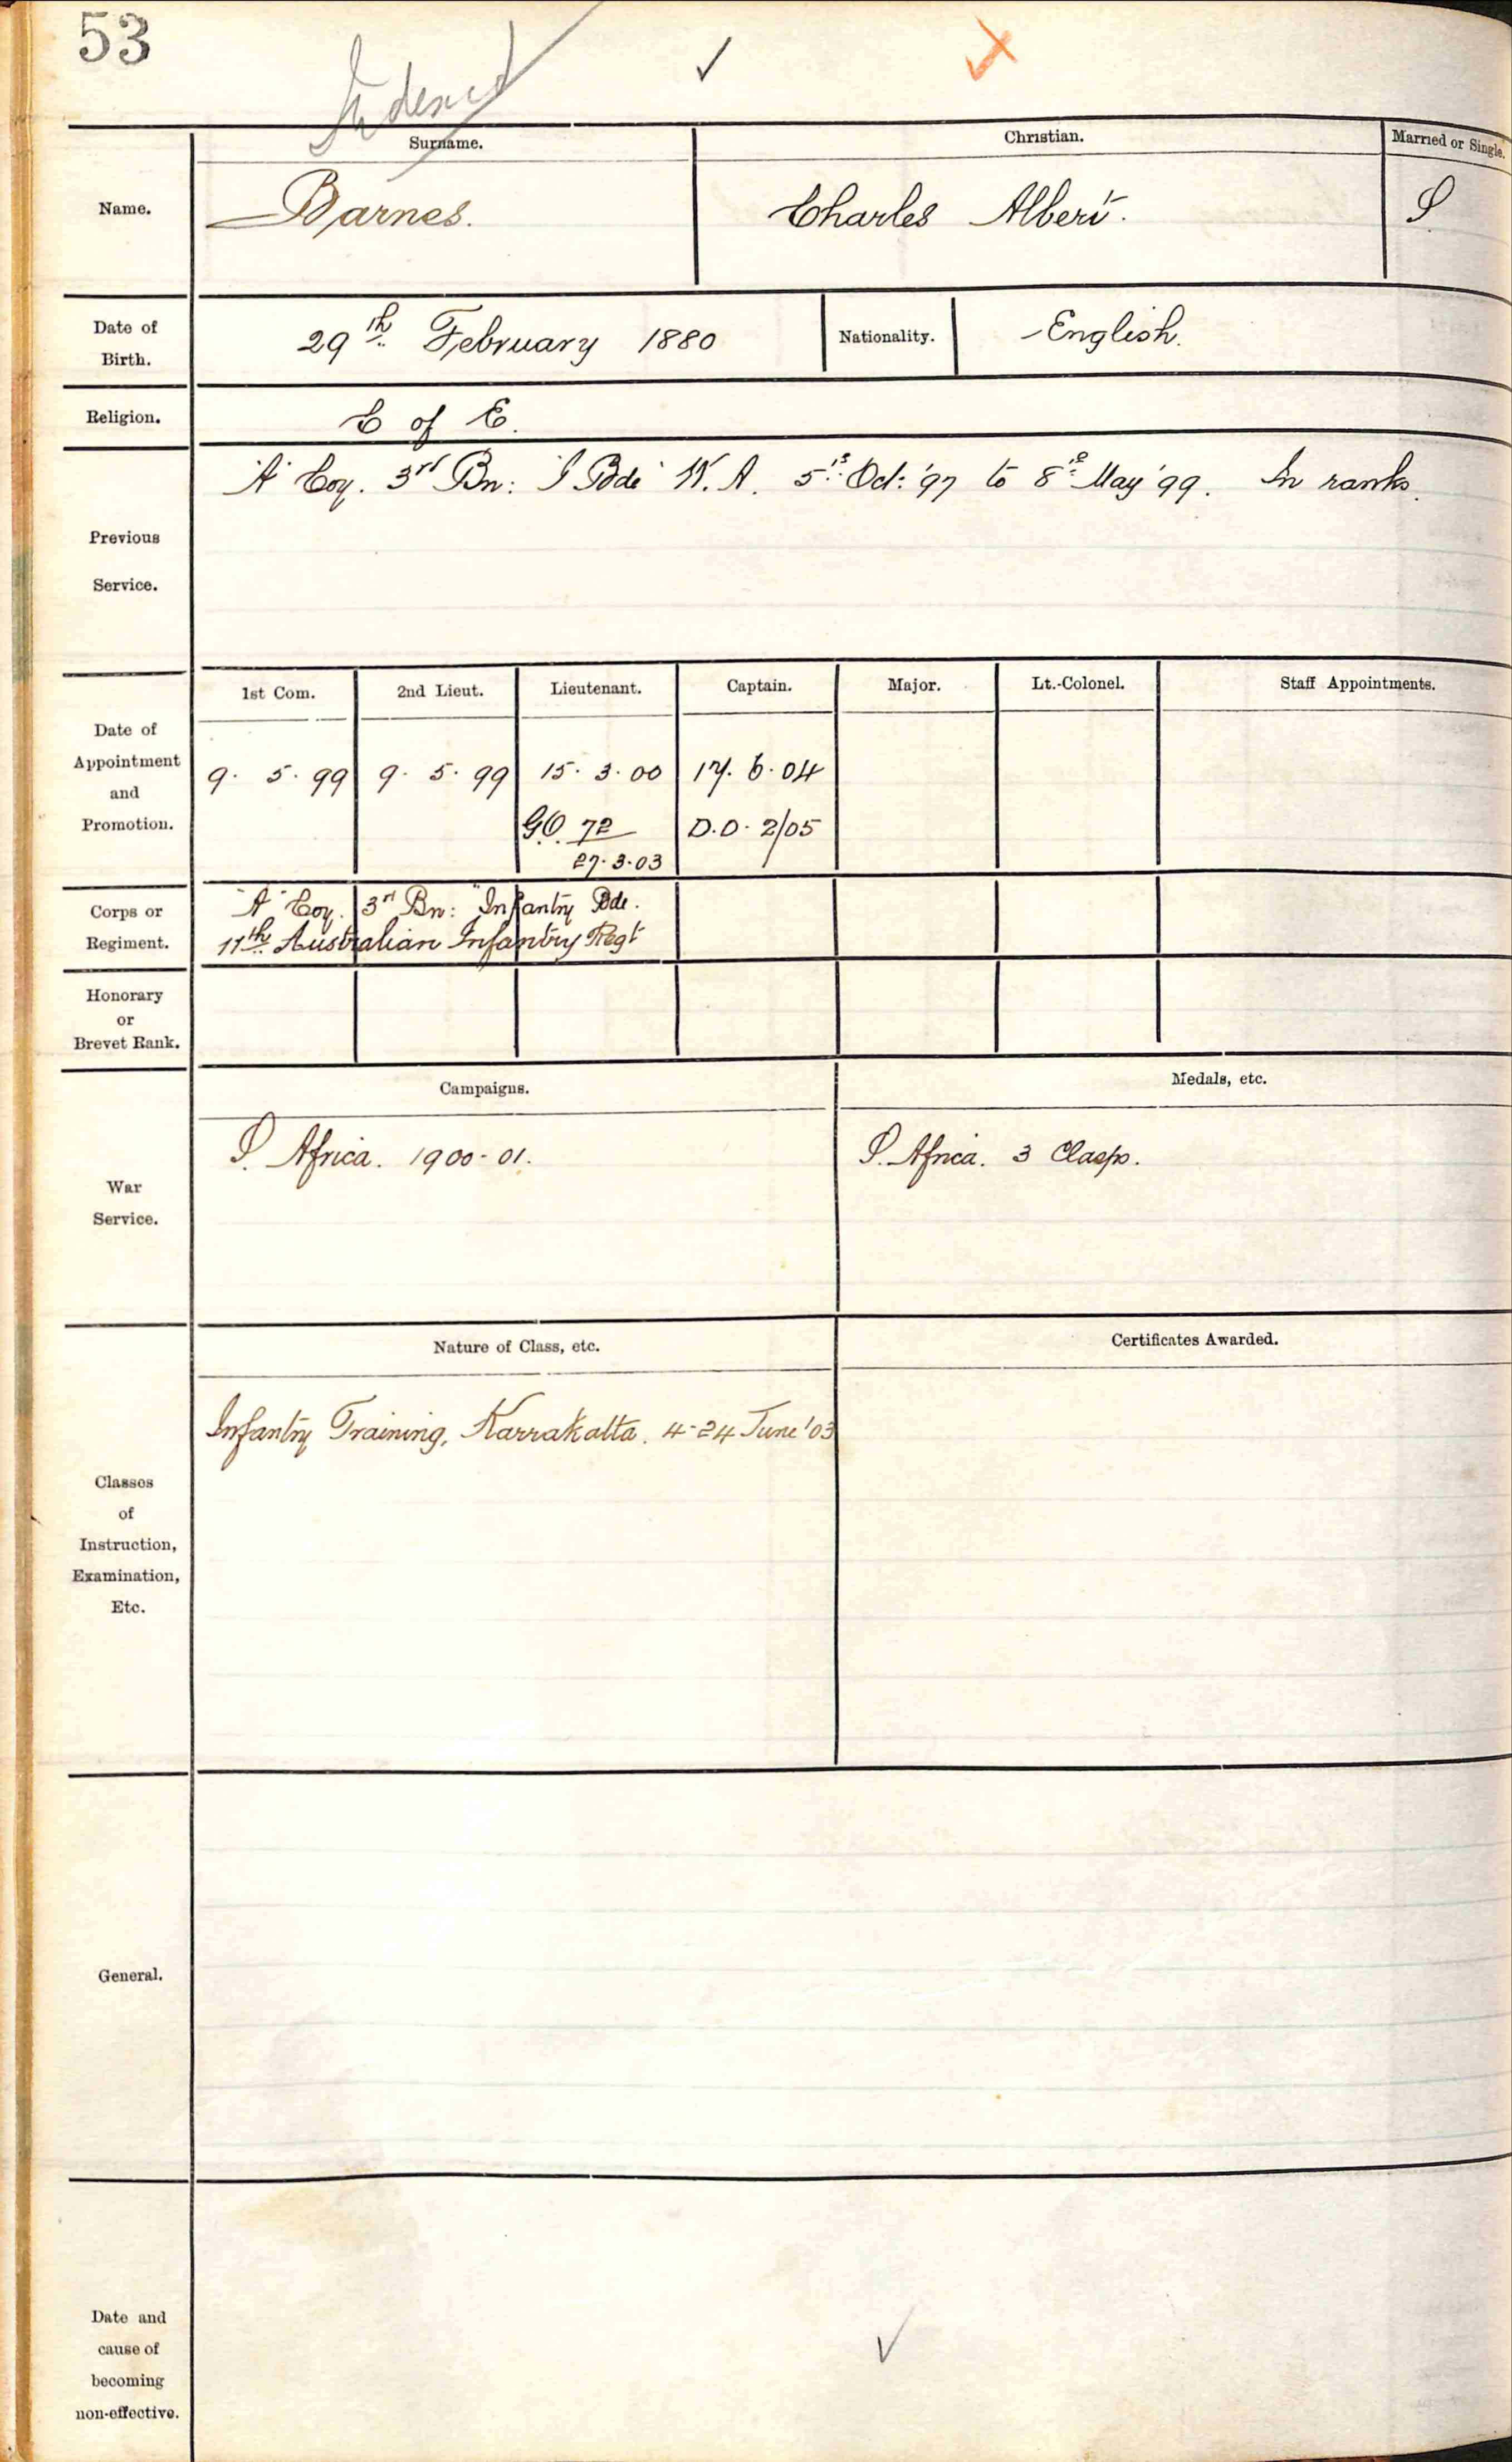 53
Indexed
Surname.
Christian.
Married or Single.
Name.
Barnes.
Charles Albert.
S
Date of
Birth.
29th February 1880
Nationality.
English.
Religion.
C of E.
Previous
Service.
"A" Coy. 3rd Bn: I Bde W.A. 5th Oct: '97 to 8th May '99. In ranks.
1st Com.
2nd Lieut.
Lieutenant.
Captain.
Major.
Lt.-Colonel.
Staff Appointments.
Date of
Appointment
and
Promotion.
9. 5. 99
9. 5. 99
15. 3. 00
17. 6. 04
G.O. 72
27.3.03
D.O. 2/05
Corps or
Regiment.
"A" Coy. 3rd Bn: Infantry Bde.
11th Australian Infantry Regt
Honorary
or
Brevet Rank.
Campaigns.
Medals, etc.
War
Service.
S. Africa. 1900-01.
S. Africa. 3 Clasps.
Nature of Class, etc.
Certificates Awarded.
Infantry Training, Karrakatta. 4-24 June '03
Classes
of
Instruction,
Examination,
Etc.
General.
Date and
cause of
becoming
non-effective.